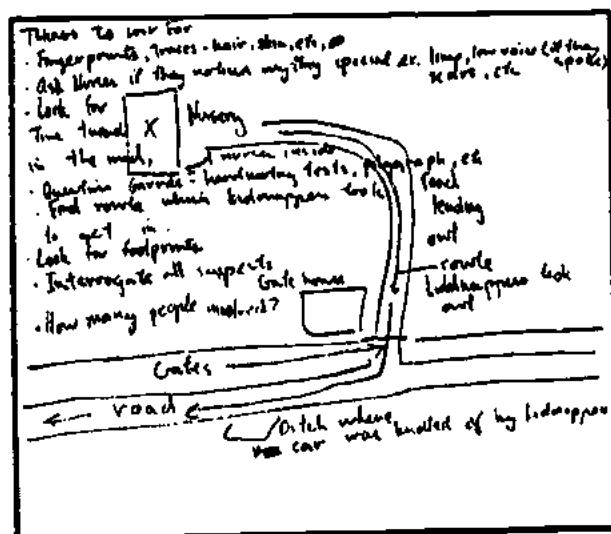 Things to look for
· Fingerprints, traces - hair, skin, etc,
· Ask Nurses if they noticed anything special ex. limp, low voice (if they spoke)
scars, etc
· Look for
Time
in the
X
Nursery
1 nurse inside
· Question - handwriting tests, polygraph, etc
· Find route which kidnappers took
to get in.
· Look for footprints
· Interrogate all suspects
· How many people involved?
Gate house
leading
out
route
kidnappers took
out
Gates
road
Ditch where
car was by kidnappers